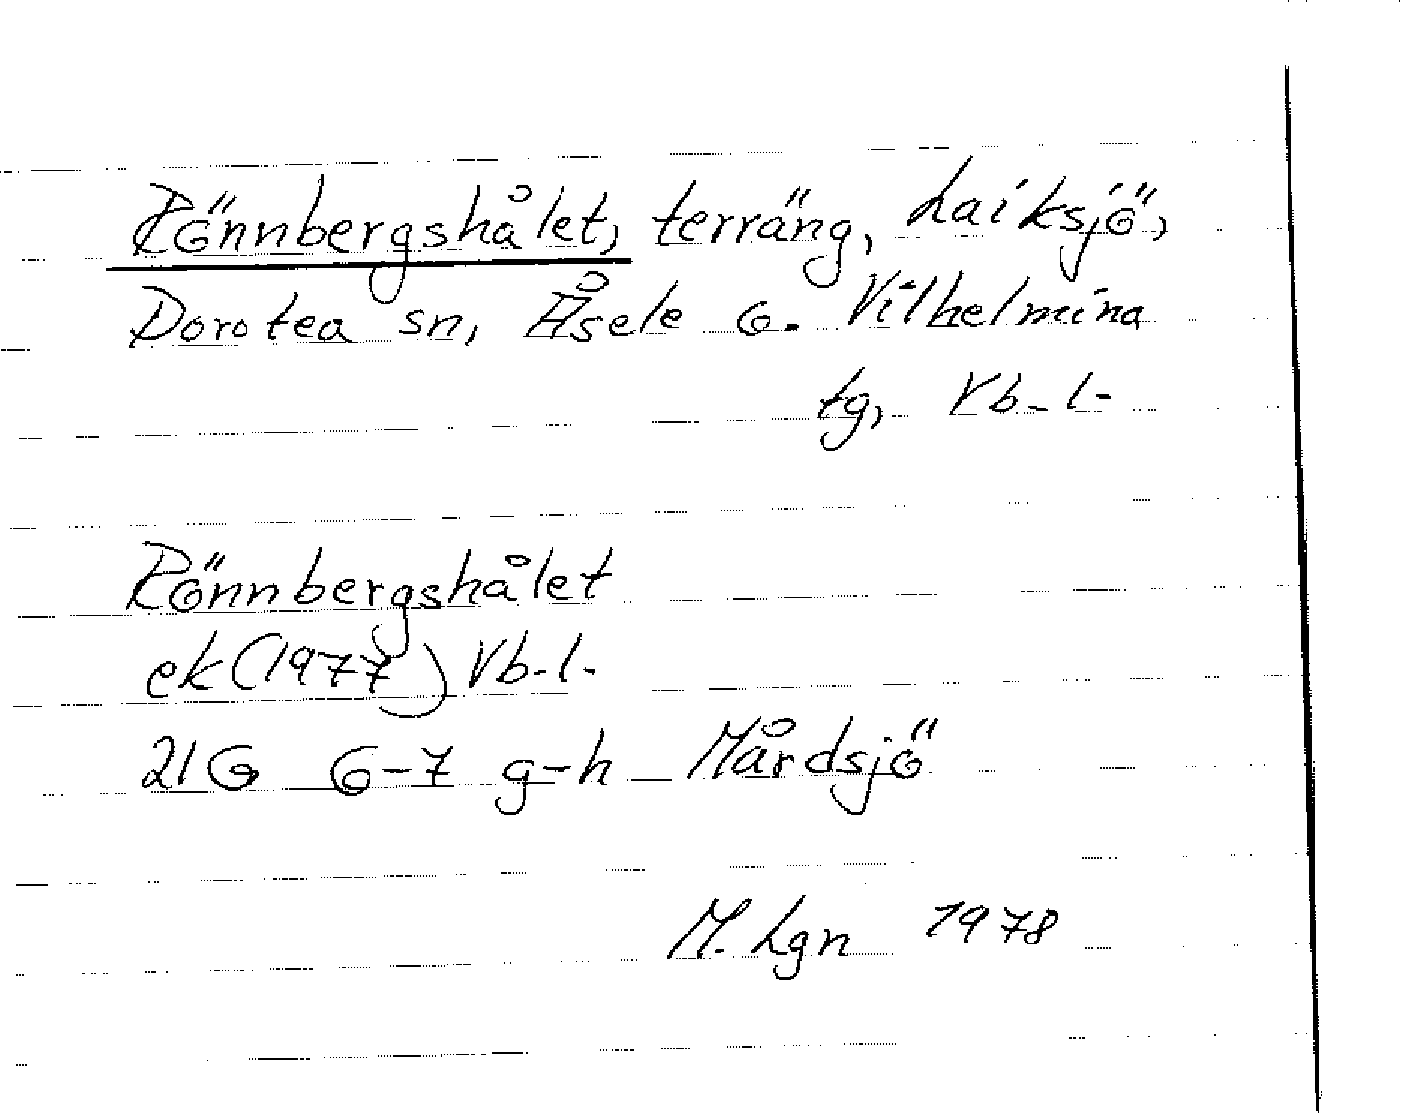 Rönnbergshålet, terräng, Laiksjö,
Dorotea sn, Åsele o. Vilhelmina
tg, Vb-l-
Rönnbergshålet
ek (1977) Vb-l-
21G 6-7 g-h Mårdsjö
M. Lgn 1978